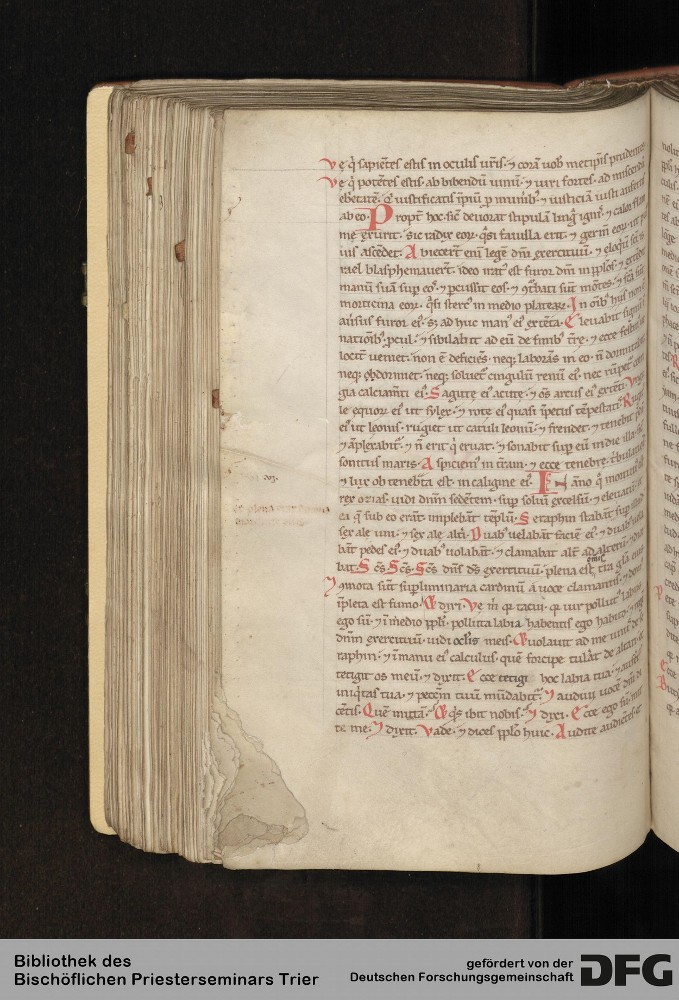 Ve q̇ sapiẽtes estis in oculis ur̃is · ⁊ corã uob̃ metip̃is prudentes
Ve q̇ potẽtes estis · ab bibendũ uinũ · ⁊ uiri fortes · ad miscendã
ebrietatẽ · q̇ iustificatis ĩpiũ ꝓ munib᷒ · ⁊ iusticiã iusti aufertis
ab eo · Propt̃ hoc sic̃ deuorat stipulã lingᷓ ignis · ⁊ calor flam
me exurit · sic radix eoꝝ · q̃si fauilla erit · ⁊ germẽ eoꝝ ut pul
uis ascẽdet · Abiecert̃ eni legẽ dñi exercituũ · ⁊ eloq̃ũ sc̃i is
rael blasphemauert̃ · ideo irat᷒ est furor dñi in ppl̃o s᷒ · ⁊ extẽdit
manũ suã sup eos · ⁊ pcussit eos · ⁊ ꝯturbati sunt mõtes · ⁊ facta sũt
morticina eoꝝ · q̃si sterc᷒ in medio plateaꝝ · In oĩb᷒ hiis non ẽ
au̾sus furor ei᷒ · s; ad huc man᷒ ei᷒ extẽta · Eleuabit signũ ĩ
nationib᷒ pcul · ⁊ sibilabit ad eũ de finib᷒ t̃re · ⁊ ecce festin᷒ ue
locit̃ ueniet · non ẽ deficiẽs · neq; laborãs in eo · ñ dormitabit
neq; obdormiet · neq; soluet᷑ cingulũ renũ ei᷒ · nec rũpet᷑ corri
gia calciam̃ti ei᷒ · Sagitte ei᷒ acute · ⁊ om̃s arcus ei᷒ extẽti · Vngu
le equoꝝ ei᷒ ut sylex · ⁊ rote ei᷒ quasi ĩpetus tẽpestatis · Rugit᷒
ei᷒ ut leonis · rugiet ut catuli leonũ · ⁊ frendet · ⁊ tenebit p̃dã
⁊ ãplexabit᷑ · ⁊ ñ erit q̇ eruat · ⁊ sonabit sup eũ in die illa · sic̃
sonitus maris · Aspiciem᷒ in t̃ram · ⁊ ecce tenebre tribulatiõis
⁊ lux obtenebrata est · in caligine ei᷒ · In ãno q̇ mortuus ẽ
rex ozias · uidi dñm sedẽtem · sup soliũ excelsũ · ⁊ eleuatũ · ⁊
ea q̃ sub eo erãt implebãt tẽplũ · Seraphin stabãt sup illud
sex ale uni · ⁊ sex ale alt̃i · Duab᷒ uelabãt faciẽ ei᷒ · ⁊ duab᷒ uela
bãt pedes ei᷒ · ⁊ duab᷒ uolabãt · ⁊ clamabat alt̃ ad alterũ · ⁊ dice
bat · Sc̃s · Sc̃s · Sc̃s dñs ds̃ exercituũ · plena est oĩs t̃ra gl̃a ei᷒
⁊ ꝯmota sũt supliminaria cardinũ a uoce clamantis · ⁊ dom᷒
ĩpleta est fumo · Et dixi · Ve m̃ q̃ tacui · q̃ uir pollut᷒ labiis
ego sũ · ⁊ ĩ medio ppl̃i · polluta labia habentis ego habito · ⁊ regẽ
dñm exercituũ · uidi ocl̃is meis · Et uolauit ad me un᷒ de se
raphin · ⁊ ĩ manu ei᷒ calculus · quẽ forcipe tulãt de altari · ⁊
tetigit os meũ · ⁊ dixit · Ecce tetigi hoc labia tua · ⁊ auferet᷑
iniq̃tas tua · ⁊ pecc̃m tuũ mũdabit᷑ · Et audiui uocẽ dñi di
cẽtis · Quẽ mittã · Et q̇s ibit nobis · Et dixi · Ecce ego sũ mit
te me · Et dixit · Vade · ⁊ dices ppl̃o huic · Audite audiẽtes ⁊
Bibliothek des
Bischöflichen Priesterseminars Trier
gefördert von der
Deutschen Forschungsgemeinschaft
DFG